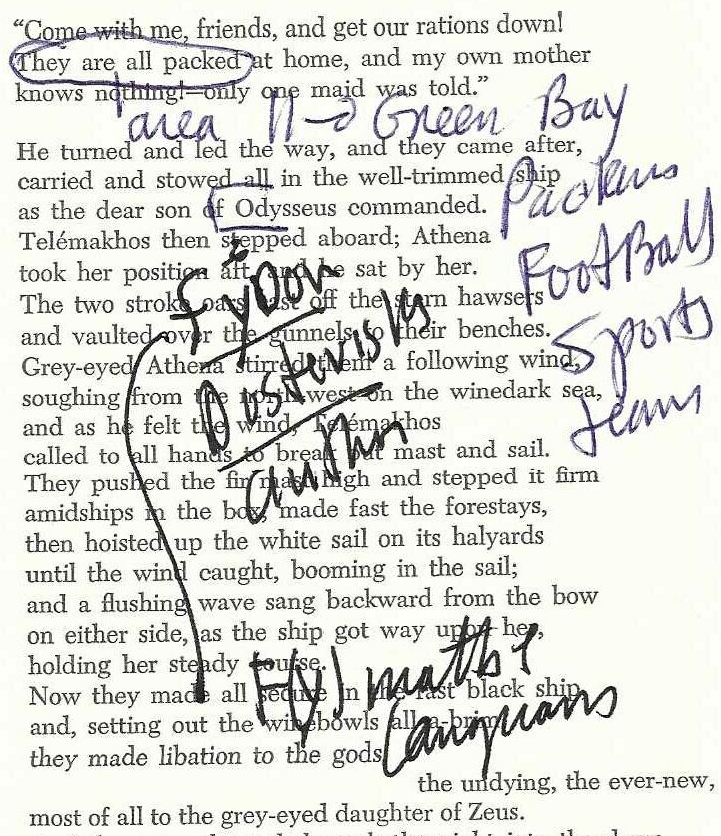 “Come with me, friends, and get our rations down!
They are all packed at home, and my own mother
knows nothing!—only one maid was told.”
area Green Bay
He turned and led the way, and they came after,
carried and stowed all in the well-trimmed ship
Packers
as the dear son of Odysseus commanded.
Telémakhos then stepped aboard; Athena
took her position aft, and he sat by her.
FootBall
Fyodor
The two stroke oars cast off the stern hawsers
and vaulted over the gunnels to their benches.
Sports
Grey-eyed Athena stirred them a following wind,
soughing from the north-west on the winedark sea,
team
Dostevisky
and as he felt the wind, Telémakhos
called to all hands to break out mast and sail.
author
They pushed the fir mast high and stepped it firm
amidships in the box, made fast the forestays,
then hoisted up the white sail on its halyards
until the wind caught, booming in the sail;
and a flushing wave sang backward from the bow
on either side, as the ship got way upon her,
holding her steady course.
maths
Now they made all secure in the fast black ship,
and, setting out the winebowls all a-brim,
they made libation to the gods,
the undying, the ever-new,
most of all to the grey-eyed daughter of Zeus.